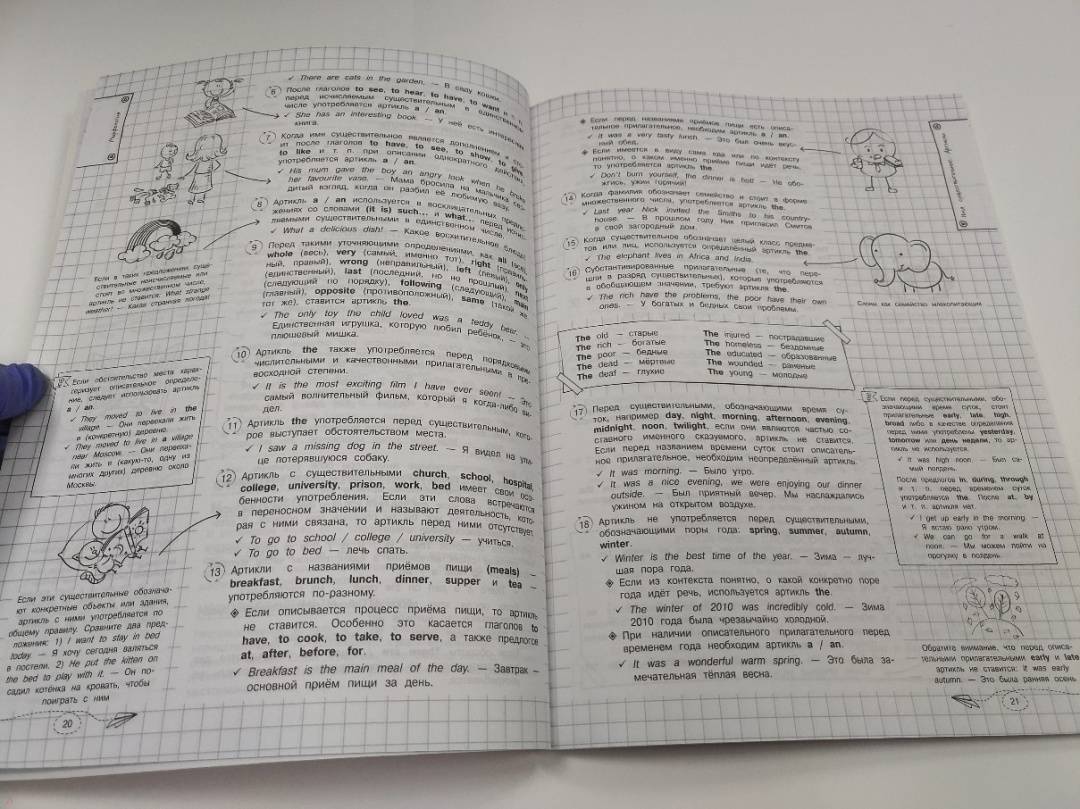 ✓ There are cats in the garden. — В саду кошки.
6 После глаголов to see, to hear, to have, to want и т. п.
перед исчисляемым существительным в единственном
числе употребляется артикль a / an.
✓ She has an interesting book. — У неё есть интересная
книга.
7 Когда имя существительное является дополнением и сто-
ит после глаголов to have, to see, to show, to give,
to like и т. п. при описании однократного действия,
употребляется артикль a / an.
✓ His mum gave the boy an angry look when he broke
her favourite vase. — Мама бросила на мальчика сер-
дитый взгляд, когда он разбил её любимую вазу.
8 Артикль a / an используется в восклицательных предло-
жениях со словами (it is) such... и what... перед исчис-
ляемыми существительными в единственном числе.
✓ What a delicious dish! — Какое восхитительное блюдо!
Если в таких предложениях суще-
ствительные неисчисляемые или
стоят во множественном числе,
артикль не ставится: What strange
weather! — Какая странная погода!
9 Перед такими уточняющими определениями, как all (все),
whole (весь), very (самый, именно тот), right (правиль-
ный, правый), wrong (неправильный), left (левый), only
(единственный), last (последний, но не прошлый), next
(следующий по порядку), following (следующий), main
(главный), opposite (противоположный), same (такой же,
тот же), ставится артикль the.
✓ The only toy the child loved was a teddy bear. —
Единственная игрушка, которую любил ребёнок, — это
плюшевый мишка.
10 Артикль the также употребляется перед порядковыми
числительными и качественными прилагательными в пре-
восходной степени.
✓ It is the most exciting film I have ever seen! — Это
самый волнительный фильм, который я когда-либо ви-
дел.
11 Артикль the употребляется перед существительным, кото-
рое выступает обстоятельством места.
✓ I saw a missing dog in the street. — Я видел на ули-
це потерявшуюся собаку.
Если обстоятельство места харак-
теризует описательное определе-
ние, следует использовать артикль
a / an.
✓ They moved to live in the
village. — Они переехали жить
в (конкретную) деревню.
✓ They moved to live in a village
near Moscow. — Они перееха-
ли жить в (какую-то, одну из
многих других) деревню около
Москвы.
12 Артикль с существительными church, school, hospital,
college, university, prison, work, bed имеет свои осо-
бенности употребления. Если эти слова встречаются
в переносном значении и называют деятельность, кото-
рая с ними связана, то артикль перед ними отсутствует.
✓ To go to school / college / university — учиться.
✓ To go to bed — лечь спать.
Если эти существительные обознача-
ют конкретные объекты или здания,
артикль с ними употребляется по
общему правилу. Сравните два пред-
ложения: 1) I want to stay in bed
today. — Я хочу сегодня валяться
в постели. 2) He put the kitten on
the bed to play with it. — Он по-
садил котёнка на кровать, чтобы
поиграть с ним
13 Артикли с названиями приёмов пищи (meals) —
breakfast, brunch, lunch, dinner, supper и tea —
употребляются по-разному.
◈ Если описывается процесс приёма пищи, то артикль
не ставится. Особенно это касается глаголов to
have, to cook, to take, to serve, а также предлогов
at, after, before, for.
✓ Breakfast is the main meal of the day. — Завтрак —
основной приём пищи за день.
20
◈ Если перед названиями приёмов пищи есть описа-
тельное прилагательное, необходим артикль a / an.
✓ It was a very tasty lunch. — Это был очень вкус-
ный обед.
◈ Если имеется в виду сама еда или по контексту
понятно, о каком именно приёме пищи идёт речь,
то употребляется артикль the.
✓ Don't burn yourself, the dinner is hot! — Не обо-
жгись, ужин горячий!
14 Когда фамилия обозначает семейство и стоит в форме
множественного числа, употребляется артикль the.
✓ Last year Nick invited the Smiths to his country-
house. — В прошлом году Ник пригласил Смитов
в свой загородный дом.
15 Когда существительное обозначает целый класс предме-
тов или лиц, используется определённый артикль the.
✓ The elephant lives in Africa and India.
Слоны как семейство млекопитающих
16 Субстантивированные прилагательные (те, что пере-
шли в разряд существительных), которые употребляются
в обобщающем значении, требуют артикля the.
✓ The rich have the problems, the poor have their own
ones. — У богатых и бедных свои проблемы.
The old — старые
The rich — богатые
The poor — бедные
The dead — мёртвые
The deaf — глухие
The injured — пострадавшие
The homeless — бездомные
The educated — образованные
The wounded — раненые
The young — молодые
17 Перед существительными, обозначающими время су-
ток, например day, night, morning, afternoon, evening,
midnight, noon, twilight, если они являются частью со-
ставного именного сказуемого, артикль не ставится.
Если перед названием времени суток стоит описатель-
ное прилагательное, необходим неопределённый артикль.
✓ It was morning. — Было утро.
✓ It was a nice evening, we were enjoying our dinner
outside. — Был приятный вечер. Мы наслаждались
ужином на открытом воздухе.
Если перед существительными, обо-
значающими время суток, стоят
прилагательные early, late, high,
broad либо в качестве определения
перед ними употреблены yesterday,
tomorrow или день недели, то ар-
тикль не используется.
✓ It was high noon. — Был са-
мый полдень.
После предлогов in, during, through
и т. п. перед временем суток
употребляется the. После at, by
и т. п. артикля нет.
✓ I get up early in the morning. —
Я встаю рано утром.
✓ We can go for a walk at
noon. — Мы можем пойти на
прогулку в полдень.
18 Артикль не употребляется перед существительными,
обозначающими поры года: spring, summer, autumn,
winter.
✓ Winter is the best time of the year. — Зима — луч-
шая пора года.
◈ Если из контекста понятно, о какой конкретно поре
года идёт речь, используется артикль the.
✓ The winter of 2010 was incredibly cold. — Зима
2010 года была чрезвычайно холодной.
◈ При наличии описательного прилагательного перед
временем года необходим артикль a / an.
✓ It was a wonderful warm spring. — Это была за-
мечательная тёплая весна.
Обратите внимание, что перед описа-
тельными прилагательными early и late
артикль не ставится: It was early
autumn. — Это была ранняя осень
21